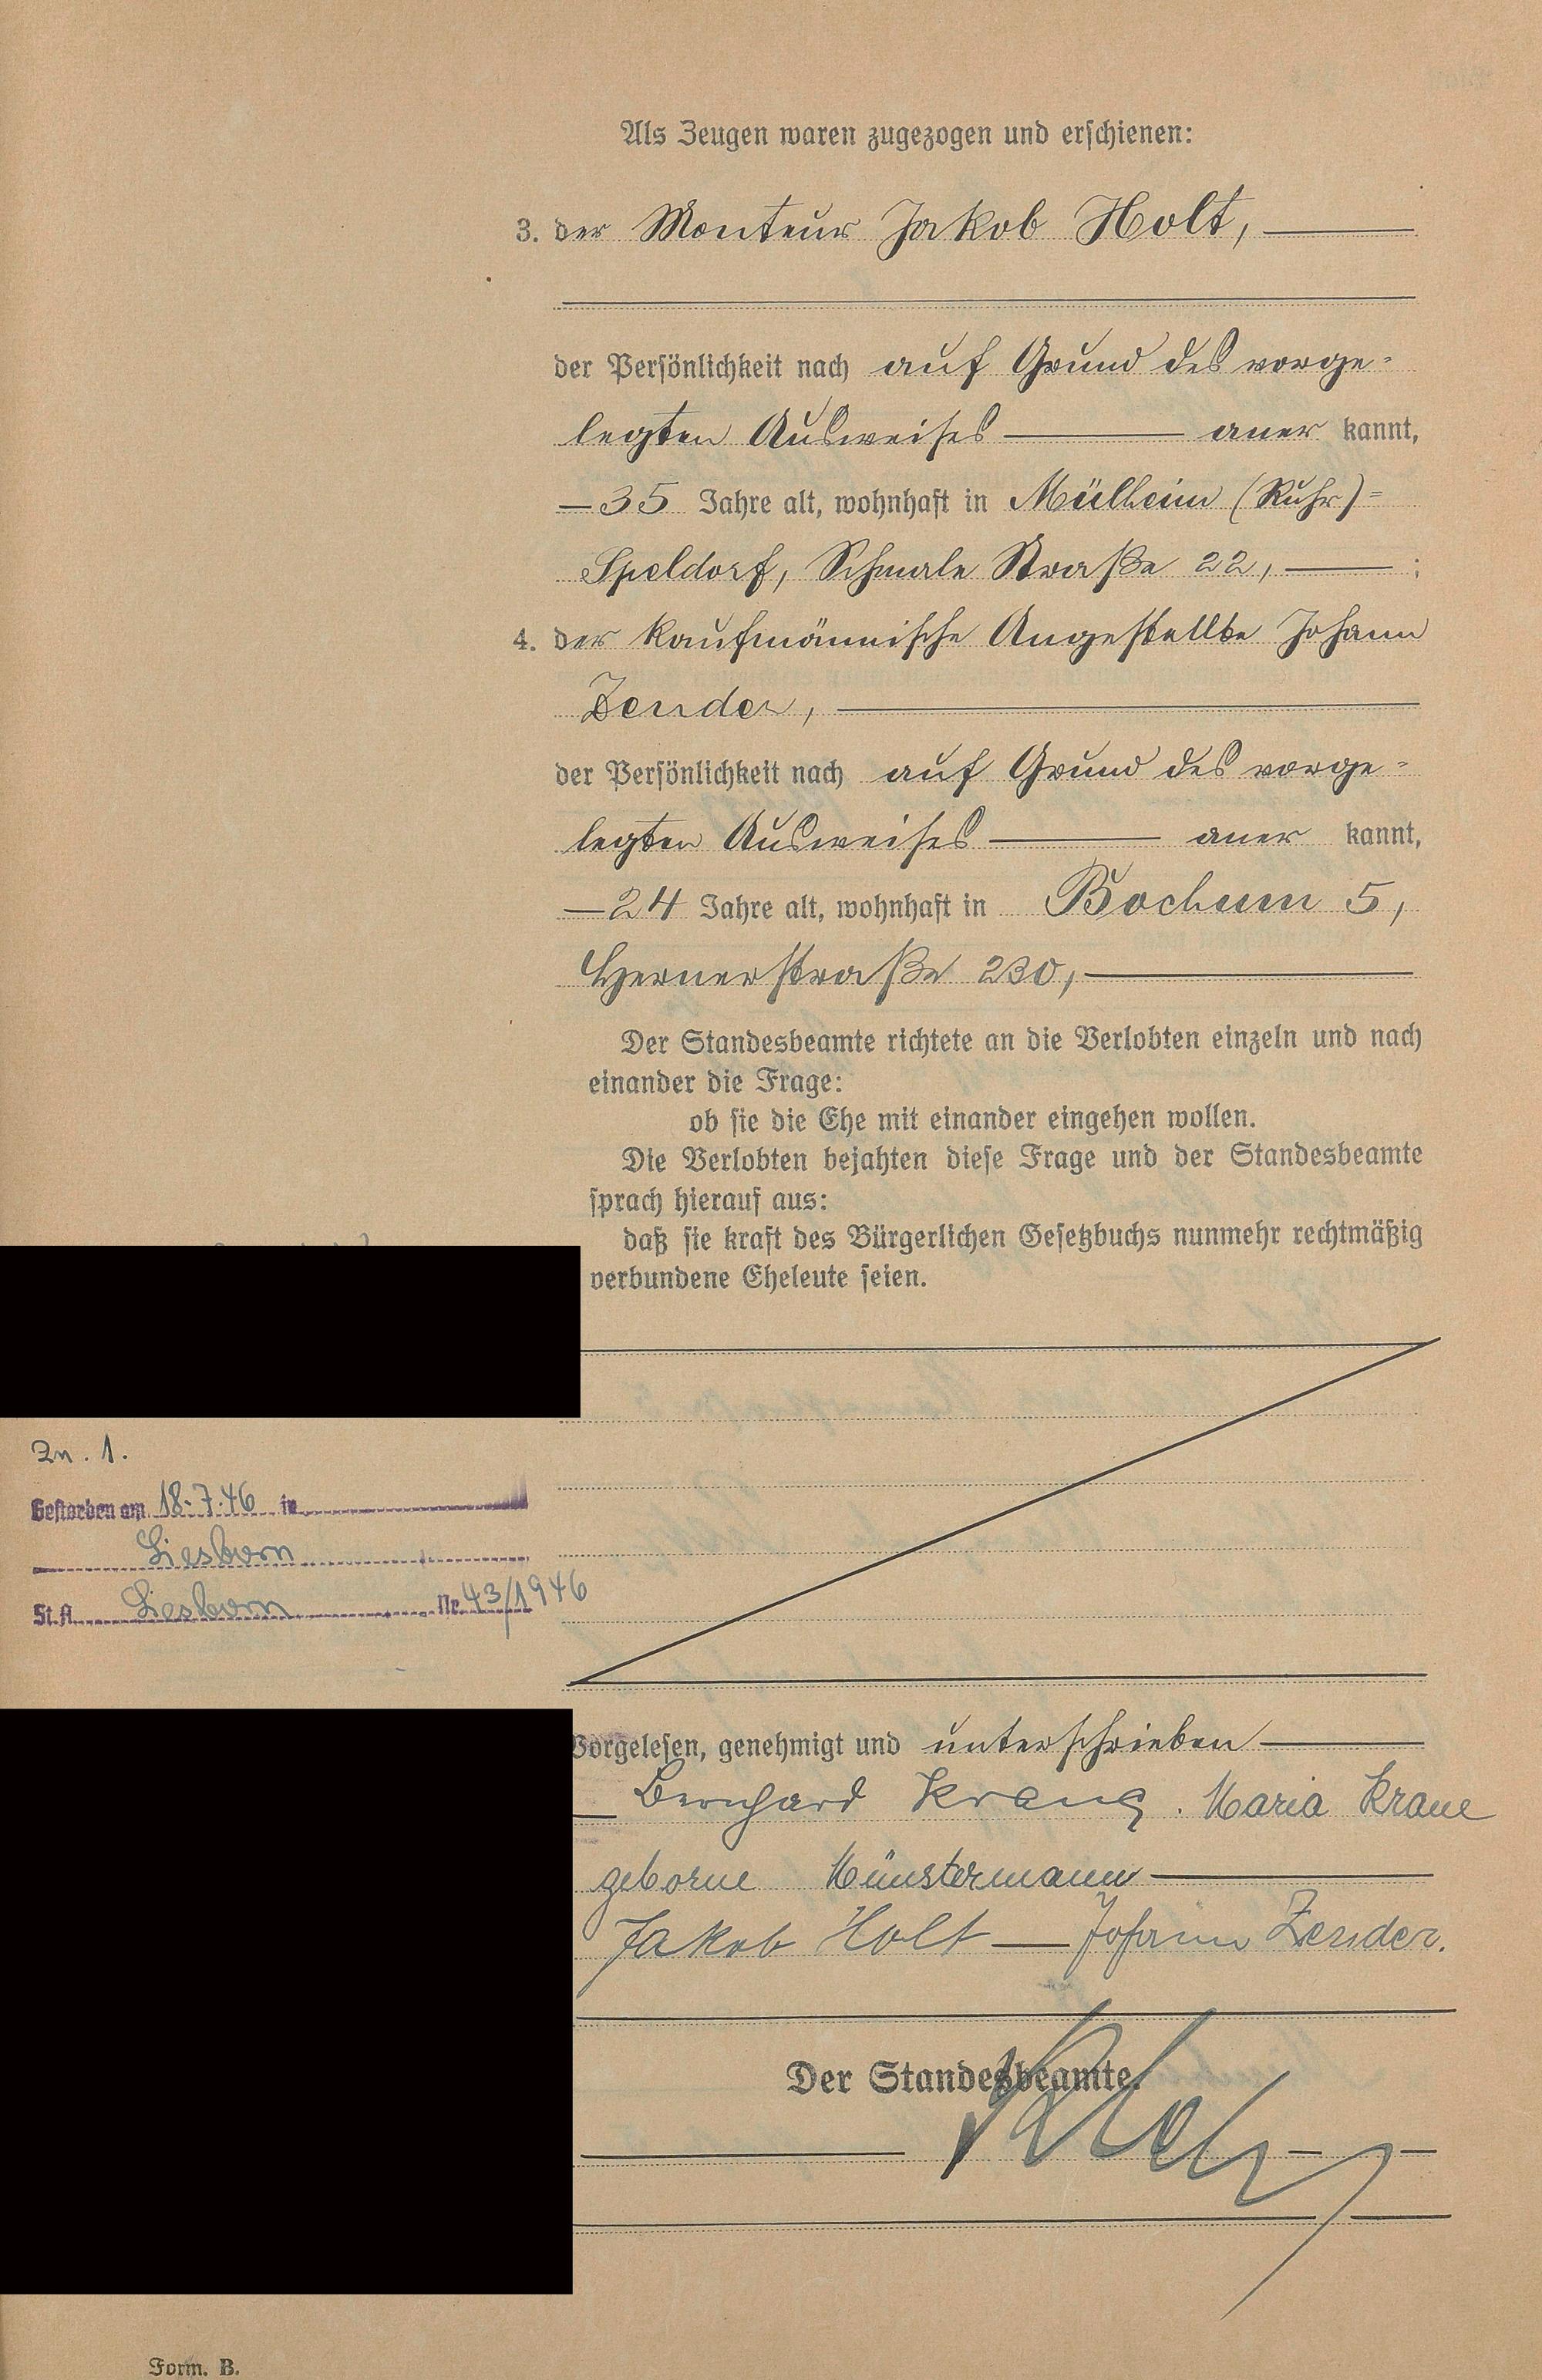 Als Zeugen waren zugezogen und erschienen:
3. der Monteur Jakob Holt,
der Persönlichkeit nach auf Grund des vorge-
legten Ausweises aner kannt,
35 Jahre alt, wohnhaft in Mülheim (Ruhr)=
Speldorf, Schmale Straße 22, ;
4. der kaufmännische Angestellte Johann
Zender,
der Persönlichkeit nach auf Grund des vorge-
legten Ausweises aner kannt,
24 Jahre alt, wohnhaft in Bochum 5,
Hernerstraße 230,
Der Standesbeamte richtete an die Verlobten einzeln und nach
einander die Frage:
ob sie die Ehe mit einander eingehen wollen.
Die Verlobten bejahten diese Frage und der Standesbeamte
sprach hierauf aus:
daß sie kraft des Bürgerlichen Gesetzbuchs nunmehr rechtmäßig
verbundene Eheleute seien.
Zu. 1.
Gestorben am 18.7.46 in
Liesborn
St. A. Liesborn Nr. 43/1946
Vorgelesen, genehmigt und unterschrieben
Bernhard Krane. Maria Krane
geborne Münstermann
Jakob Holt — Johann Zender.
Der Standesbeamte.
Form. B.